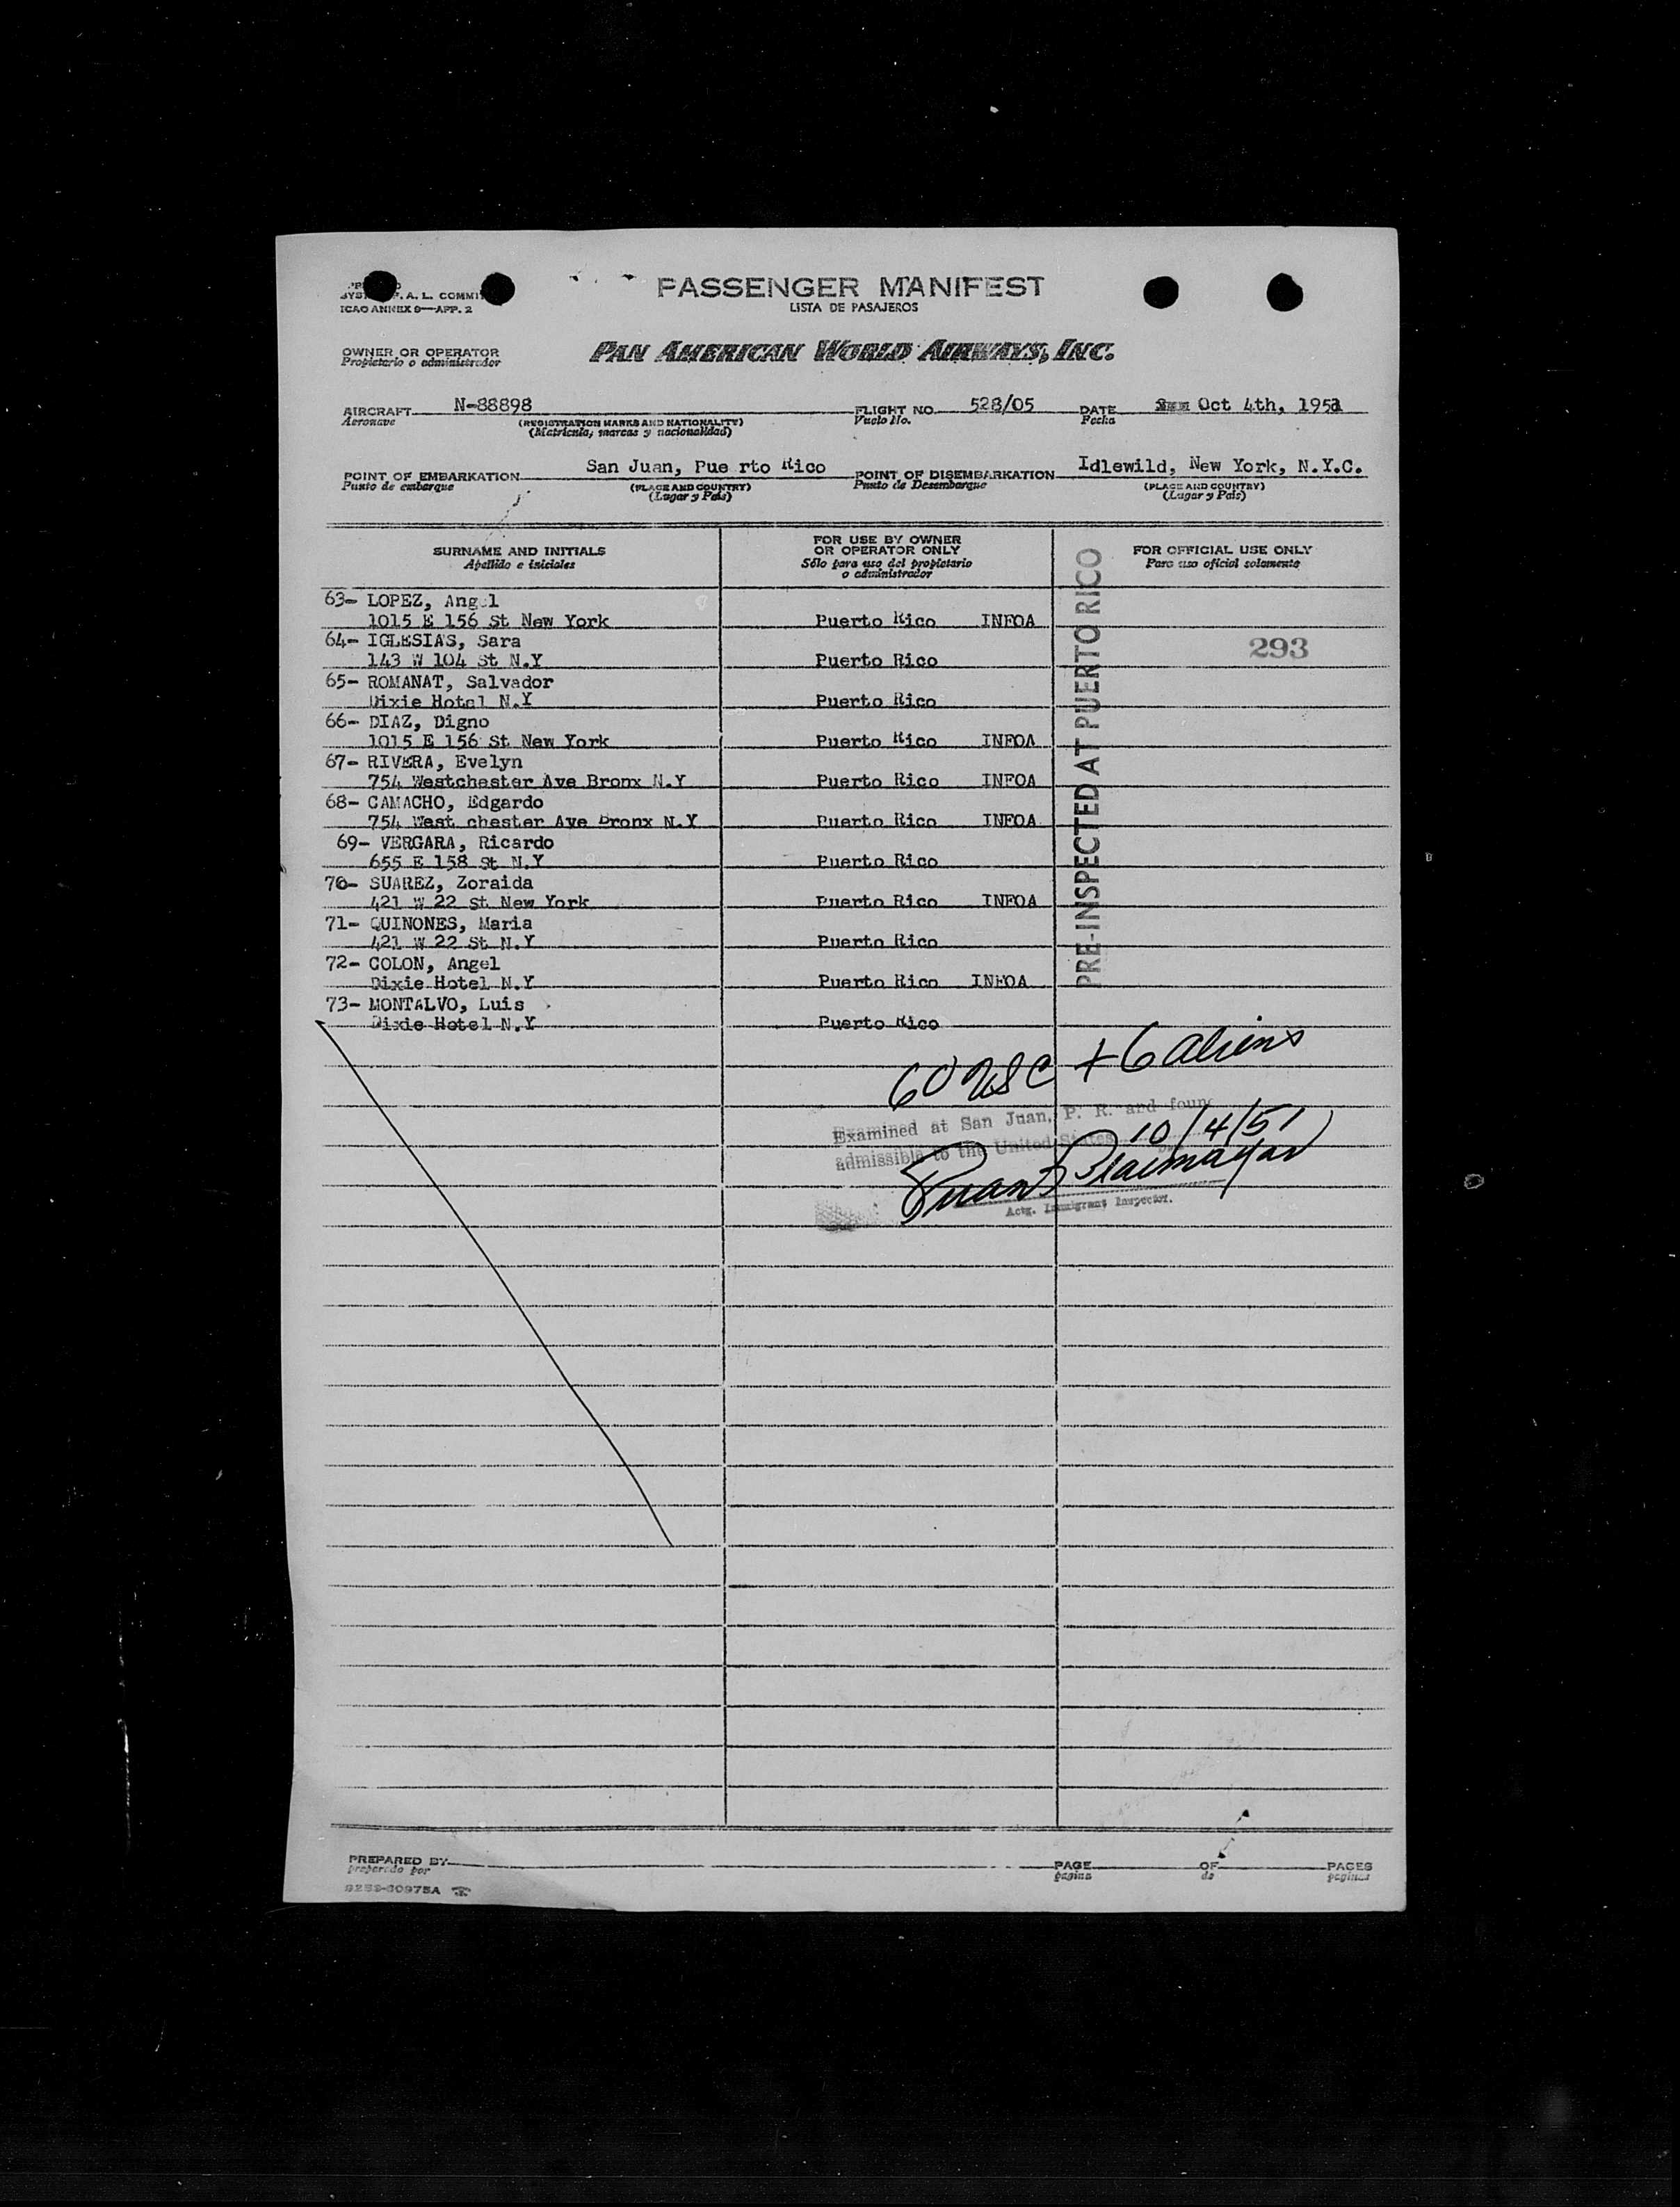 PASSENGER MANIFEST
LISTA DE PASAJEROS
A. L. COMMI
ICAO ANNEX 9—APP. 2
OWNER OR OPERATOR
Propietario o administrador
PAN AMERICAN WORLD AIRWAYS, INC.
AIRCRAFT N-88898 FLIGHT NO. 528/05 DATE Oct 4th, 1951
Aeronave (REGISTRATION MARKS AND NATIONALITY) Vuelo No. Fecha
(Matricula, marcas y nacionalidad)
POINT OF EMBARKATION San Juan, Pue rto Rico POINT OF DISEMBARKATION Idlewild, New York, N.Y.C.
Punto de embarque (PLACE AND COUNTRY) Punto de Desembarque (PLACE AND COUNTRY)
(Lugar y País) (Lugar y País)
SURNAME AND INITIALS
Apellido e iniciales
FOR USE BY OWNER
OR OPERATOR ONLY
Sólo para uso del propietario
o administrador
FOR OFFICIAL USE ONLY
Para uso oficial solamente
PRE-INSPECTED AT PUERTO RICO
63- LOPEZ, Angel
1015 E 156 St New York Puerto Rico INFOA
64- IGLESIAS, Sara 293
143 W 104 St N.Y Puerto Rico
65- ROMANAT, Salvador
Dixie Hotel N.Y Puerto Rico
66- DIAZ, Digno
1015 E 156 St New York Puerto Rico INFOA
67- RIVERA, Evelyn
754 Westchester Ave Bronx N.Y Puerto Rico INFOA
68- CAMACHO, Edgardo
754 West chester Ave Bronx N.Y Puerto Rico INFOA
69- VERGARA, Ricardo
655 E 158 St N.Y Puerto Rico
70- SUAREZ, Zoraida
421 W 22 St New York Puerto Rico INFOA
71- QUINONES, Maria
421 W 22 St N.Y Puerto Rico
72- COLON, Angel
Dixie Hotel N.Y Puerto Rico INFOA
73- MONTALVO, Luis
Dixie Hotel N.Y Puerto Rico
60 USC + 6 aliens
Examined at San Juan, P. R. and found
admissible to the United States 10/4/51
Actg. Immigrant Inspector.
PREPARED BY PAGE OF PAGES
preparado por pagina de paginas